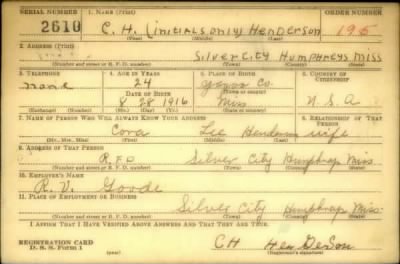 SERIAL NUMBER 1. NAME (Print) ORDER NUMBER
2610 C. H. (INITIALS ONLY) HENDERSON 195
(First) (Middle) (Last)
2. ADDRESS (Print)
SILVER CITY HUMPHREYS MISS
(Number and street or R. F. D. number) (Town) (County) (State)
3. TELEPHONE 4. AGE IN YEARS 5. PLACE OF BIRTH 6. COUNTRY OF CITIZENSHIP
none 24 Yazoo Co.
DATE OF BIRTH (Town or county)
8 28 1916 Miss U.S.A
(Exchange) (Number) (Mo.) (Day) (Yr.) (State or country)
7. NAME OF PERSON WHO WILL ALWAYS KNOW YOUR ADDRESS 8. RELATIONSHIP OF THAT PERSON
Cora Lee Henderson wife
(Mr., Mrs., Miss) (First) (Middle) (Last)
9. ADDRESS OF THAT PERSON
R.F.D Silver City Humphreys Miss.
(Number and street or R. F. D. number) (Town) (County) (State)
10. EMPLOYER'S NAME
R. V. Goode
11. PLACE OF EMPLOYMENT OR BUSINESS
Silver City Humphreys Miss.
(Number and street or R. F. D. number) (Town) (County) (State)
I AFFIRM THAT I HAVE VERIFIED ABOVE ANSWERS AND THAT THEY ARE TRUE.
REGISTRATION CARD
D. S. S. Form 1 CH HenDerSon
(over) (Registrant's signature)